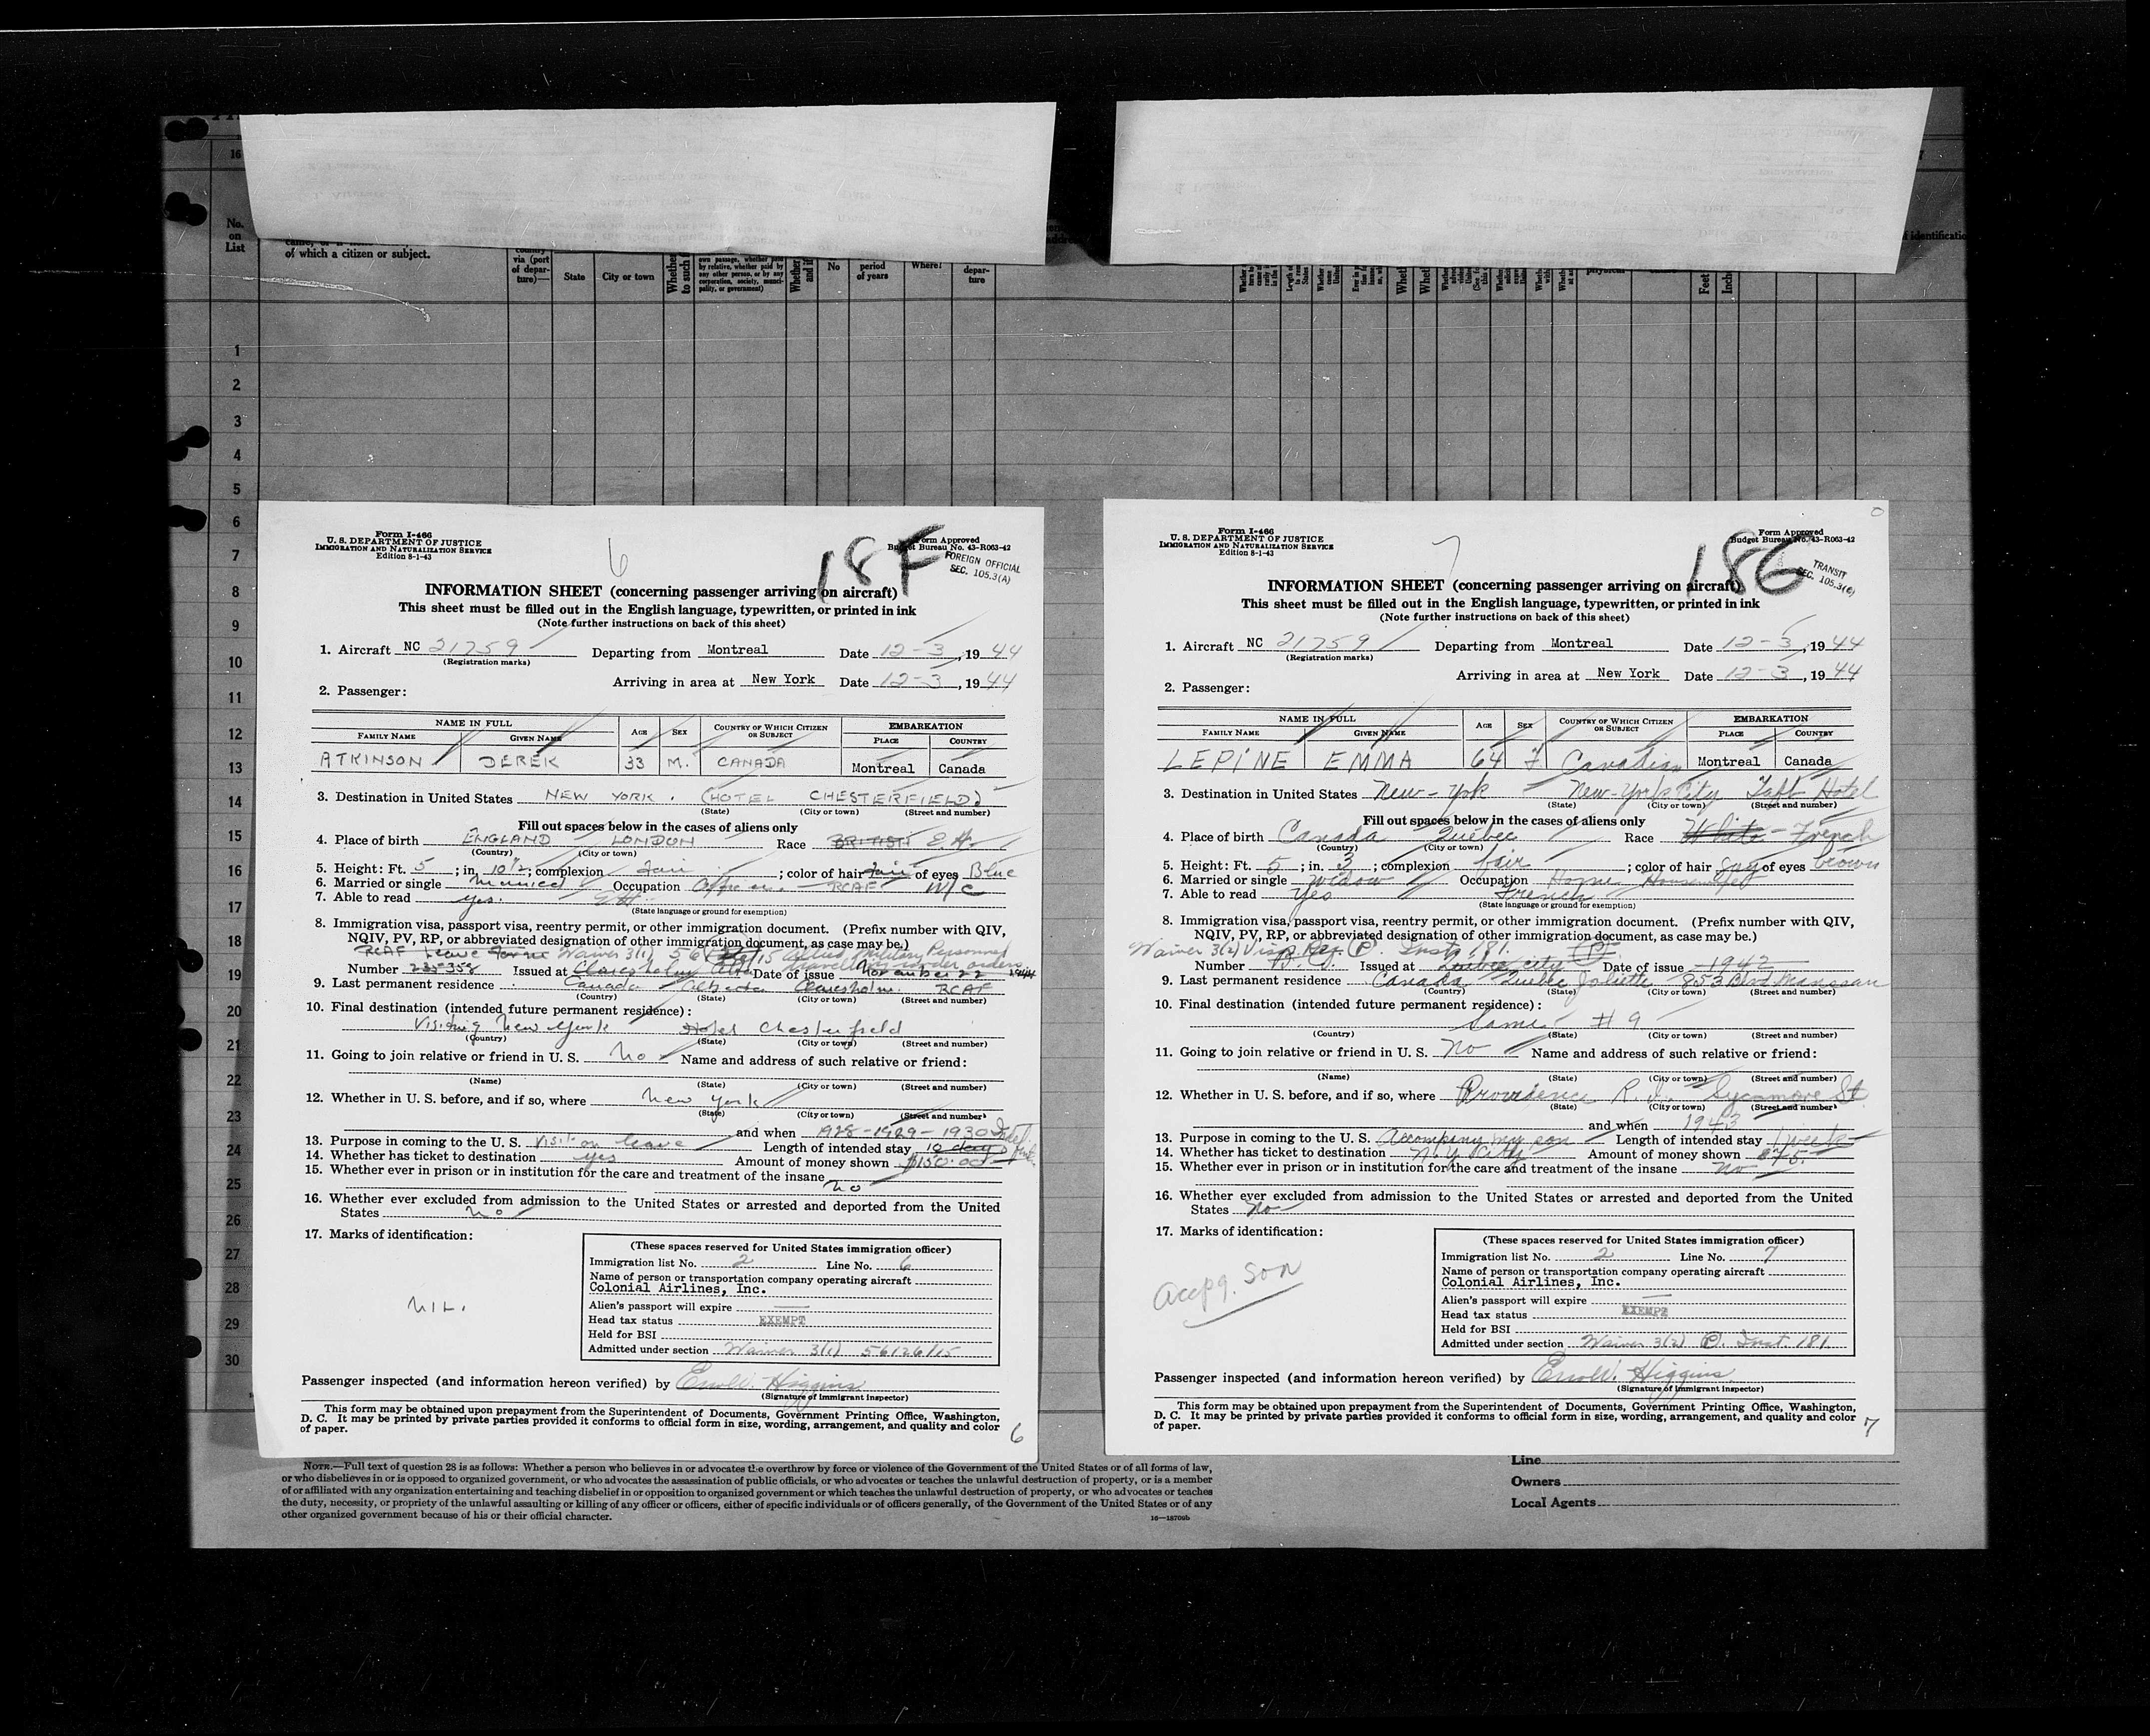 16
No.
on
List
of which a citizen or subject.
via (port
of depar-
ture)—
State
City or town
Whether
to such
own passage, whether paid
by relative, whether paid by
any other person, or by any
corporation, society, munici-
pality, or government)
Whether
and if
No
period
of years
Where?
depar-
ture
Feet
identification
1
2
3
4
5
6
7
8
9
10
11
12
13
14
15
16
17
18
19
20
21
22
23
24
25
26
27
28
29
30
Form I-466
U. S. DEPARTMENT OF JUSTICE
IMMIGRATION AND NATURALIZATION SERVICE
Edition 8-1-43
6
18F
Form Approved
Budget Bureau No. 43-R063-42
FOREIGN OFFICIAL
SEC. 105.3(A)
INFORMATION SHEET (concerning passenger arriving on aircraft)
This sheet must be filled out in the English language, typewritten, or printed in ink
(Note further instructions on back of this sheet)
1. Aircraft NC 21759 Departing from Montreal Date 12-3, 1944
(Registration marks)
Arriving in area at New York Date 12-3, 1944
2. Passenger:
NAME IN FULL AGE SEX COUNTRY OF WHICH CITIZEN OR SUBJECT EMBARKATION
FAMILY NAME GIVEN NAME PLACE COUNTRY
ATKINSON DEREK 33 M. CANADA Montreal Canada
3. Destination in United States NEW YORK. (HOTEL CHESTERFIELD)
(State) (City or town) (Street and number)
Fill out spaces below in the cases of aliens only
4. Place of birth ENGLAND LONDON Race BRITISH
(Country) (City or town)
5. Height: Ft. 5; in. 10½; complexion Fair; color of hair Fair of eyes Blue
6. Married or single Married Occupation RCAF W/C
7. Able to read yes.
(State language or ground for exemption)
8. Immigration visa, passport visa, reentry permit, or other immigration document. (Prefix number with QIV,
NQIV, PV, RP, or abbreviated designation of other immigration document, as case may be.)
RCAF Leave Waiver 3(1) 56 /15 Allied Military Personnel
travelling under orders
Number 235358 Issued at Claresholm Alta Date of issue November 22 1944
9. Last permanent residence Canada Alberta Claresholm. RCAF
(Country) (State) (City or town) (Street and number)
10. Final destination (intended future permanent residence):
Visiting New York Hotel Chesterfield
(Country) (State) (City or town) (Street and number)
11. Going to join relative or friend in U. S. No Name and address of such relative or friend:
(Name) (State) (City or town) (Street and number)
12. Whether in U. S. before, and if so, where New York
(State) (City or town) (Street and number)
and when 1928-1929-1930
13. Purpose in coming to the U. S. Visit on leave Length of intended stay 10 days
14. Whether has ticket to destination yes Amount of money shown $150.00
15. Whether ever in prison or in institution for the care and treatment of the insane
no
16. Whether ever excluded from admission to the United States or arrested and deported from the United
States no
17. Marks of identification:
NIL.
(These spaces reserved for United States immigration officer)
Immigration list No. 2 Line No. 6
Name of person or transportation company operating aircraft
Colonial Airlines, Inc.
Alien's passport will expire —
Head tax status EXEMPT
Held for BSI
Admitted under section Waiver 3(1) 56126/15
Passenger inspected (and information hereon verified) by Higgins
(Signature of Immigrant Inspector)
This form may be obtained upon prepayment from the Superintendent of Documents, Government Printing Office, Washington,
D. C. It may be printed by private parties provided it conforms to official form in size, wording, arrangement, and quality and color
of paper.
6
Form I-466
U. S. DEPARTMENT OF JUSTICE
IMMIGRATION AND NATURALIZATION SERVICE
Edition 8-1-43
7
18G
Form Approved
Budget Bureau No. 43-R063-42
TRANSIT
SEC. 105.3(c)
INFORMATION SHEET (concerning passenger arriving on aircraft)
This sheet must be filled out in the English language, typewritten, or printed in ink
(Note further instructions on back of this sheet)
1. Aircraft NC 21759 Departing from Montreal Date 12-3, 1944
(Registration marks)
Arriving in area at New York Date 12-3, 1944
2. Passenger:
NAME IN FULL AGE SEX COUNTRY OF WHICH CITIZEN OR SUBJECT EMBARKATION
FAMILY NAME GIVEN NAME PLACE COUNTRY
LEPINE EMMA 64 F Canadian Montreal Canada
3. Destination in United States New-York New-York City Taft Hotel
(State) (City or town) (Street and number)
Fill out spaces below in the cases of aliens only
4. Place of birth Canada Québec Race White - French
(Country) (City or town)
5. Height: Ft. 5; in. 3; complexion fair; color of hair gray of eyes brown
6. Married or single widow Occupation Home Housewife
7. Able to read Yes French
(State language or ground for exemption)
8. Immigration visa, passport visa, reentry permit, or other immigration document. (Prefix number with QIV,
NQIV, PV, RP, or abbreviated designation of other immigration document, as case may be.)
Waiver 3(2) Visa Reg. (P). Inst. 181.
Number Issued at Quebec city Date of issue 1942
9. Last permanent residence Canada Quebec Joliette 853 Blvd Manseau
(Country) (State) (City or town) (Street and number)
10. Final destination (intended future permanent residence):
Same # 9
(Country) (State) (City or town) (Street and number)
11. Going to join relative or friend in U. S. No Name and address of such relative or friend:
(Name) (State) (City or town) (Street and number)
12. Whether in U. S. before, and if so, where Providence R. I. Sycamore St.
(State) (City or town) (Street and number)
and when 1943
13. Purpose in coming to the U. S. Accompany my son Length of intended stay 1 week
14. Whether has ticket to destination N.Y. City Amount of money shown $75.
15. Whether ever in prison or in institution for the care and treatment of the insane no
16. Whether ever excluded from admission to the United States or arrested and deported from the United
States No
17. Marks of identification:
Accpg. Son
(These spaces reserved for United States immigration officer)
Immigration list No. 2 Line No. 7
Name of person or transportation company operating aircraft
Colonial Airlines, Inc.
Alien's passport will expire —
Head tax status EXEMPT
Held for BSI
Admitted under section Waiver 3(2) (P). Inst. 181.
Passenger inspected (and information hereon verified) by Higgins
(Signature of Immigrant Inspector)
This form may be obtained upon prepayment from the Superintendent of Documents, Government Printing Office, Washington,
D. C. It may be printed by private parties provided it conforms to official form in size, wording, arrangement, and quality and color
of paper.
7
NOTE.—Full text of question 28 is as follows: Whether a person who believes in or advocates the overthrow by force or violence of the Government of the United States or of all forms of law,
or who disbelieves in or is opposed to organized government, or who advocates the assassination of public officials, or who advocates or teaches the unlawful destruction of property, or is a member
of or affiliated with any organization entertaining and teaching disbelief in or opposition to organized government or which teaches the unlawful destruction of property, or who advocates or teaches
the duty, necessity, or propriety of the unlawful assaulting or killing of any officer or officers, either of specific individuals or of officers generally, of the Government of the United States or of any
other organized government because of his or their official character.
16—18709b
Line
Owners
Local Agents